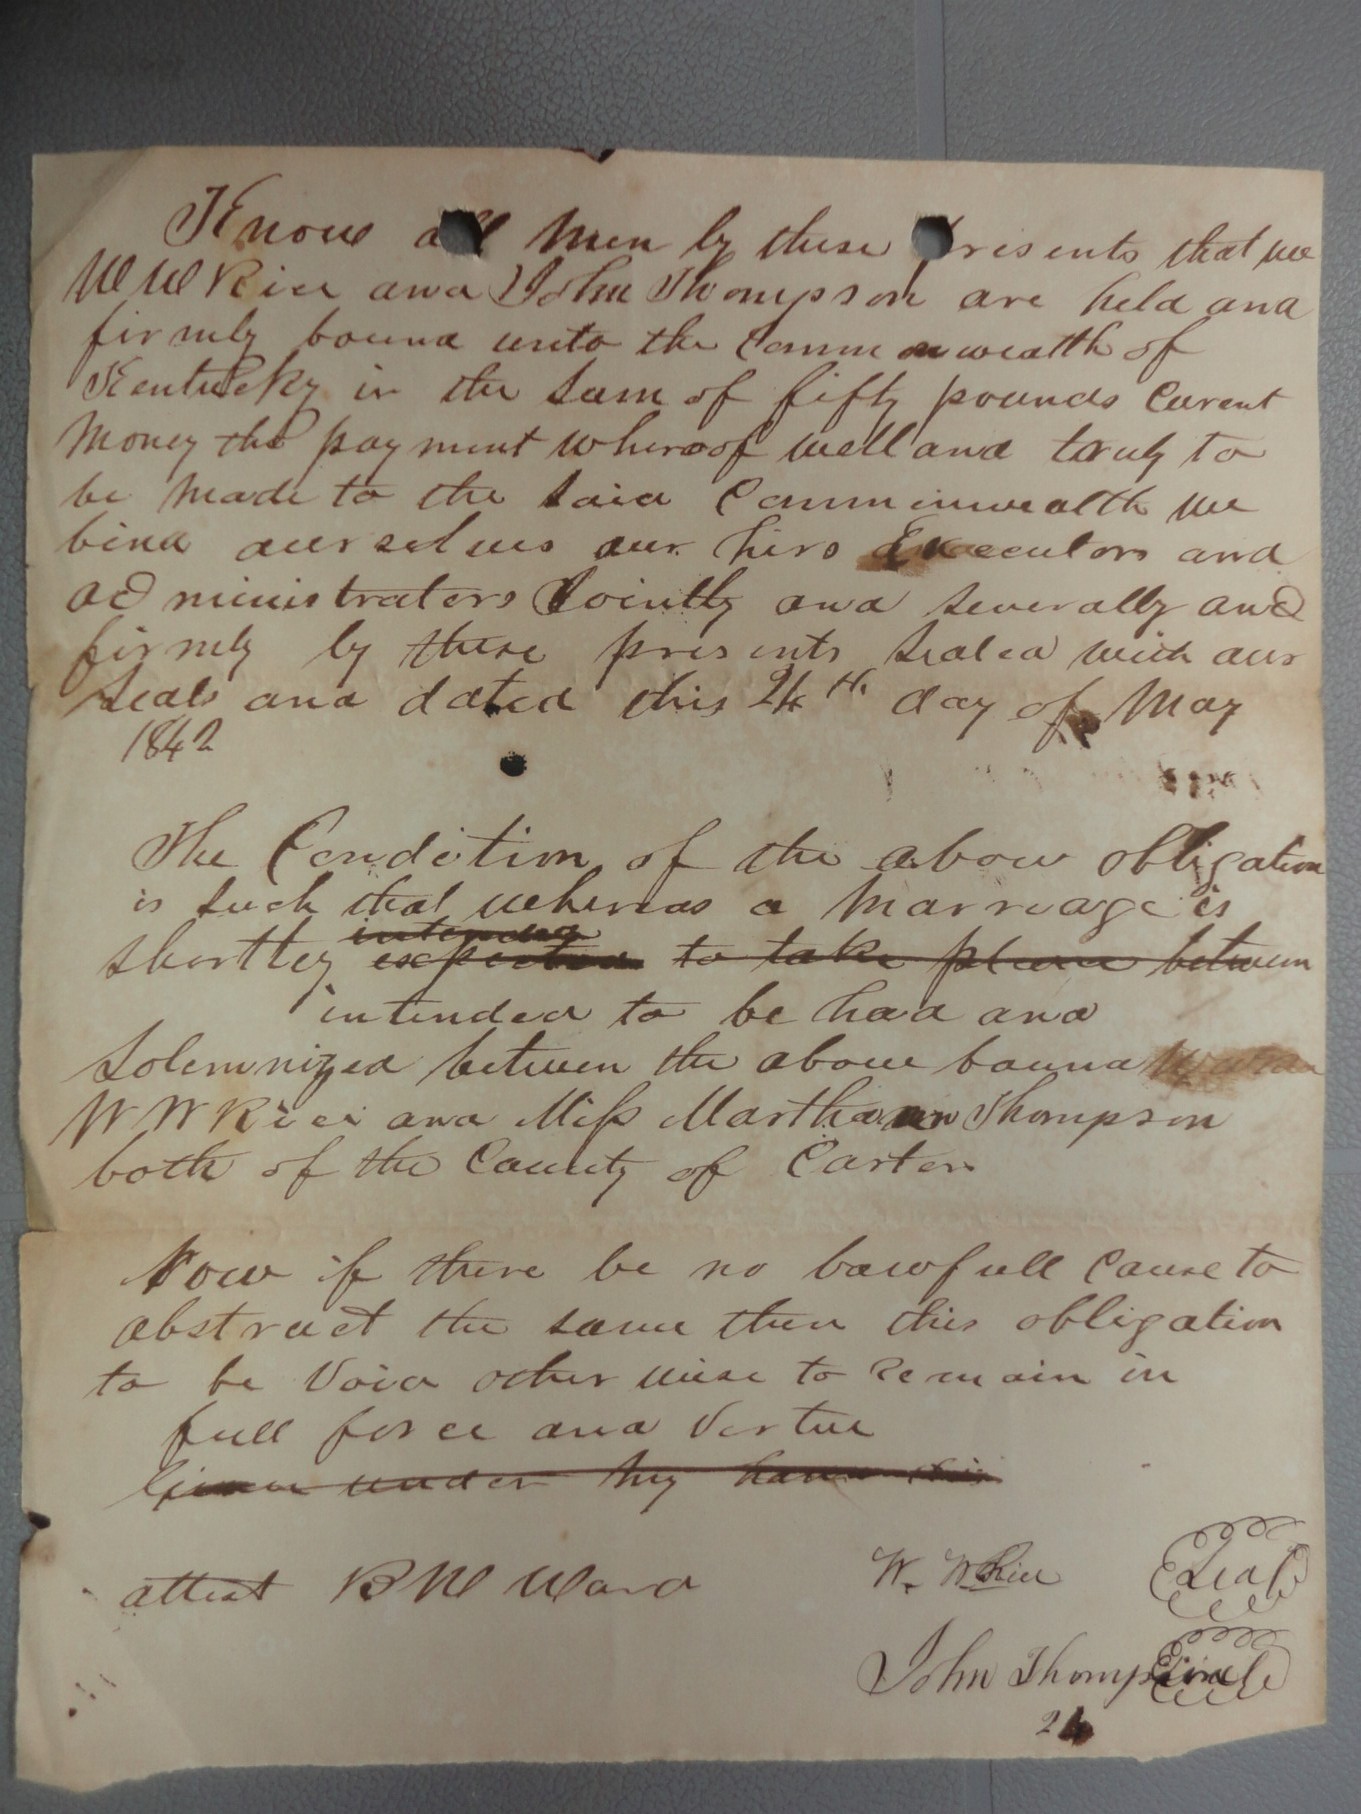 Know all men by these presents that we
W W Rice and John Thompson are held and
firmly bound unto the Commonwealth of
Kentucky in the sum of fifty pounds Curent
Money the payment whereof well and truly to
be made to the said Commonwealth we
bind ourselves our hirs Executors and
administrators Jointly and severally and
firmly by these presents sealed with our
seals and dated this 24th day of May
1842
The Condition of the above obligation
is such that whereas a Marriage is
intended
shortley expected to take place between
intended to be had and
Solemnized between the above bound
W W Rice and Miss Marthaann Thompson
both of the County of Carter
Now if there be no lawfull Cause to
abstruct the same then this obligation
to be Void other wise to Remain in
full force and Vertue
Given under my hand this
attest B W Ward W. W Rice Seal
John Thompson Seal
24